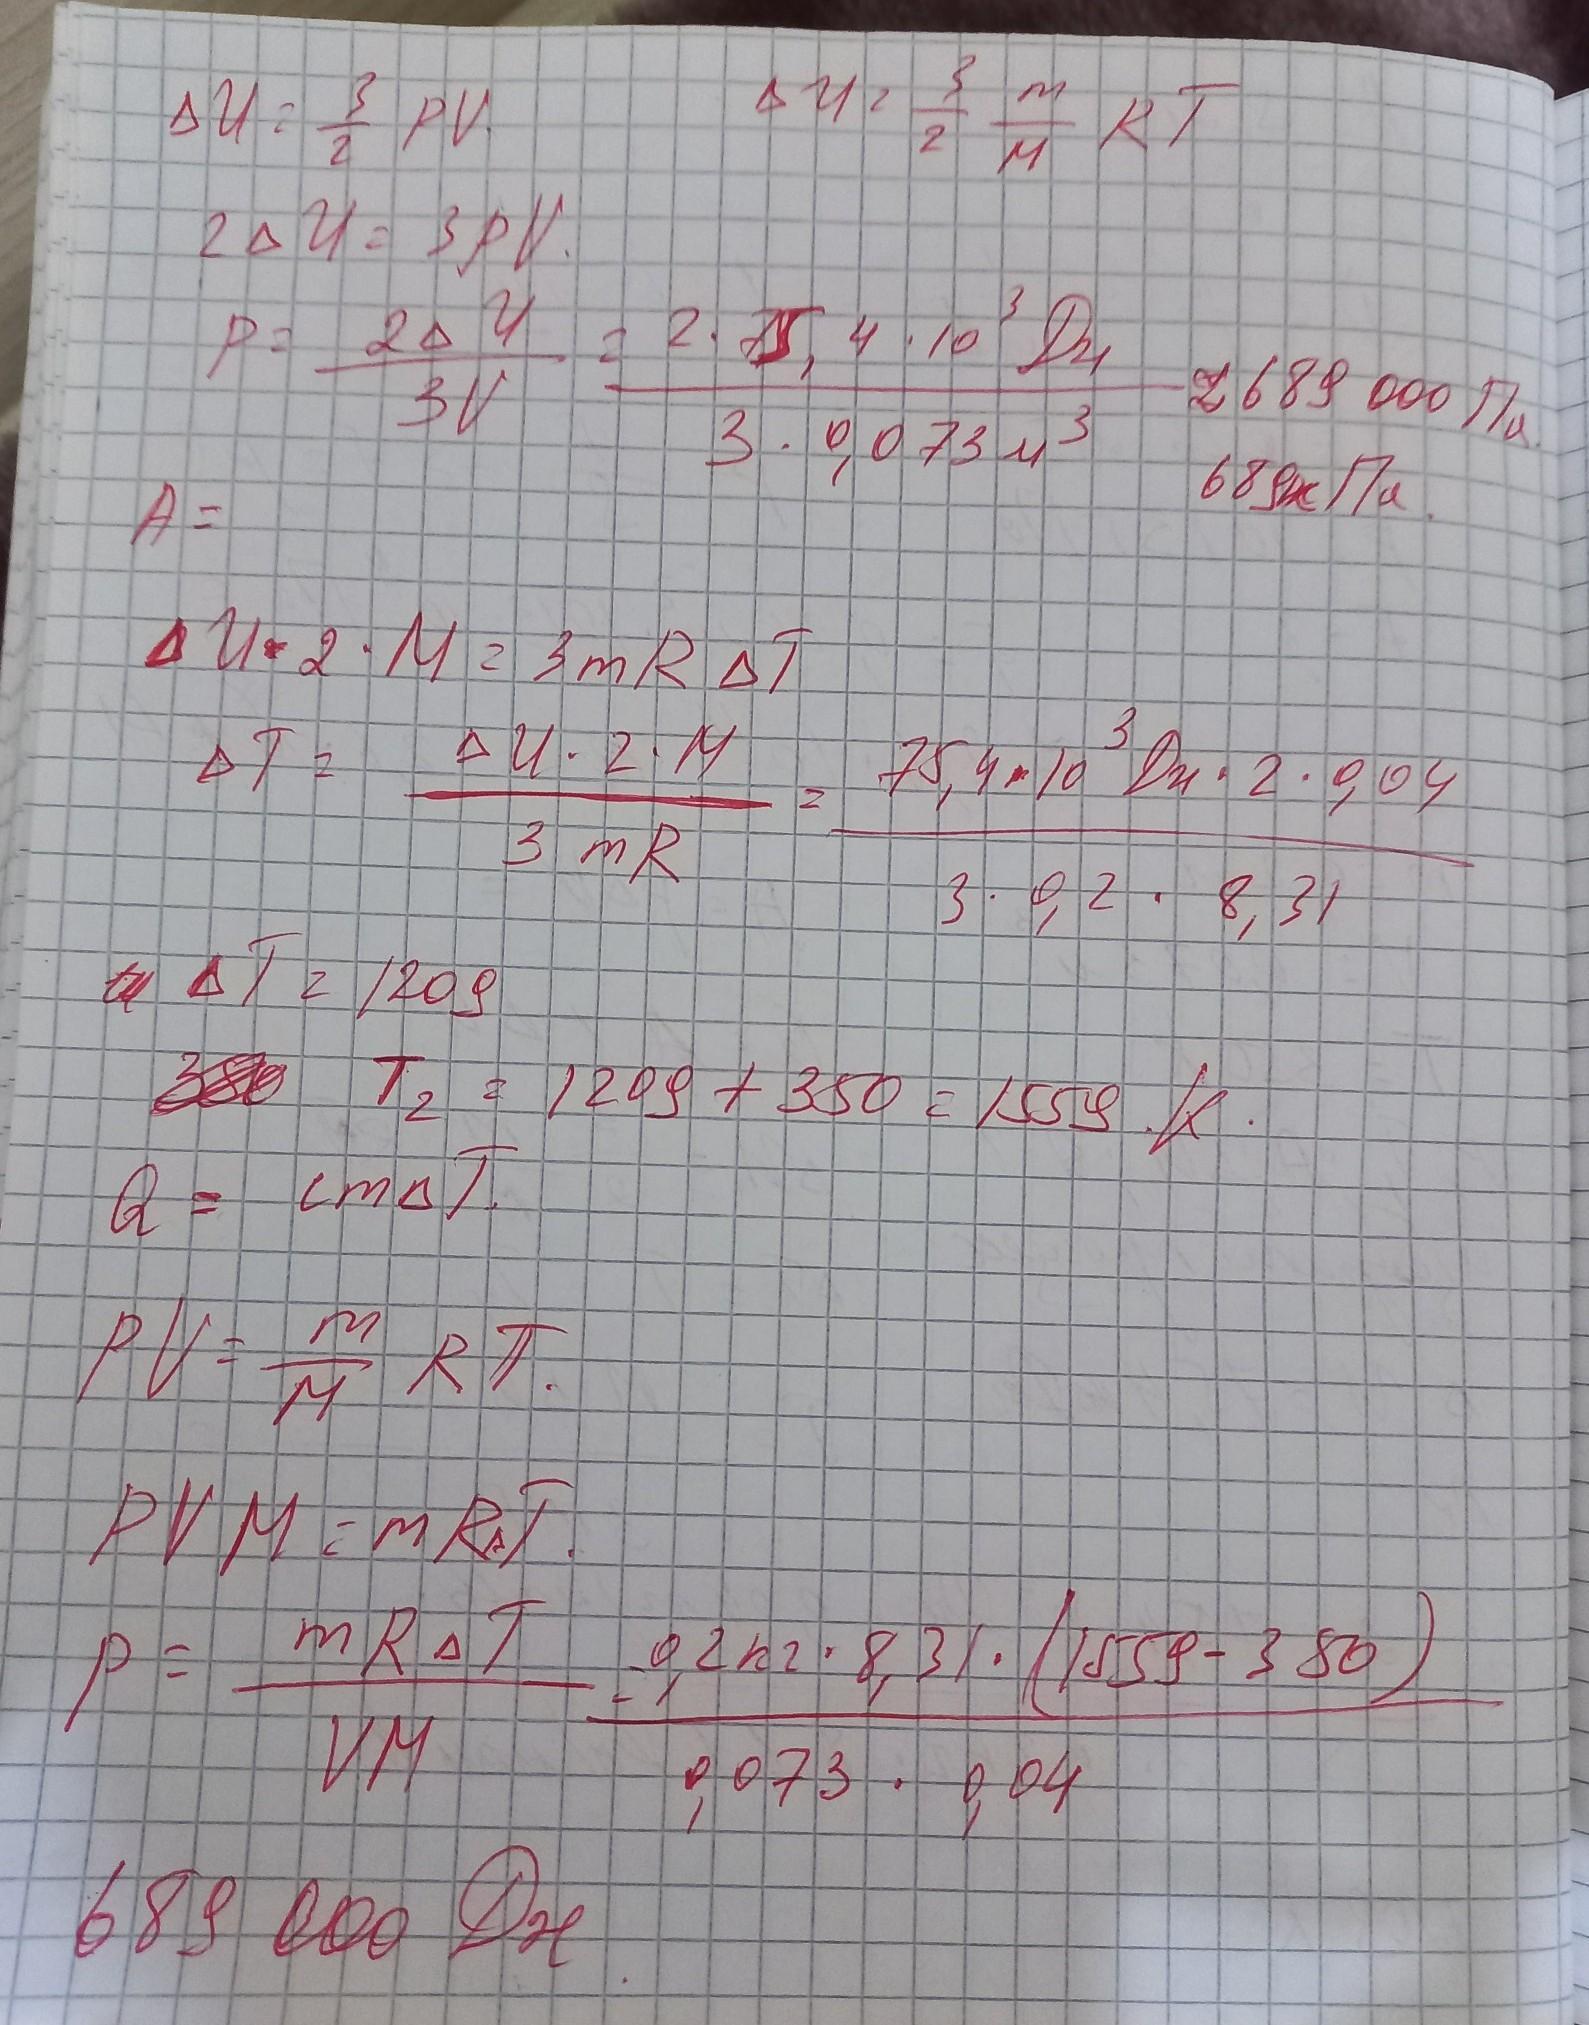 ΔU = 3/2 PV. ΔU = 3/2 m/M RT
2ΔU = 3PV.
P = 2ΔU/3V = 2·75,4·10³ Дж / 3·0,073 м³ ≈ 689 000 Па.
689 кПа.
A =
ΔU·2·M = 3mRΔT
ΔT = ΔU·2·M / 3mR = 75,4·10³ Дж·2·0,04 / 3·0,2·8,31
ΔT = 1209
T₂ = 1209 + 350 = 1559 K.
Q = cmΔT.
PV = m/M RT.
PVM = mRΔT.
P = mRΔT / VM = 0,2 кг·8,31·(1559-350) / 0,073·0,04
689 000 Дж.